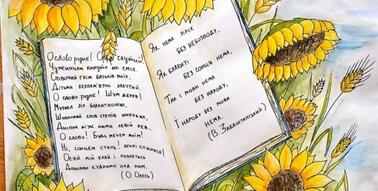 О слово рідне! Орле скутий!
Чужинцям кинуте на сміх.
Співочий грім батьків моїх,
Дітьми безпам'ятно забутий.
О слово рідне! Шум дерев!
Музика зір блакитнооких,
Шовковий спів степів широких,
Дніпра між ними левій рев.
О слово! Будь мечем моїм!
Ні, сонцем стань! вгорі спинися!
Осяй мій край і розлетись
Дощами судними над ним.
(О. Олесь)
Як нема зірок
без небозводу,
Як блакиті
без сонця нема,
Так і мови нема
без народу,
І народу без мови
нема.
(В. Забаштанський)